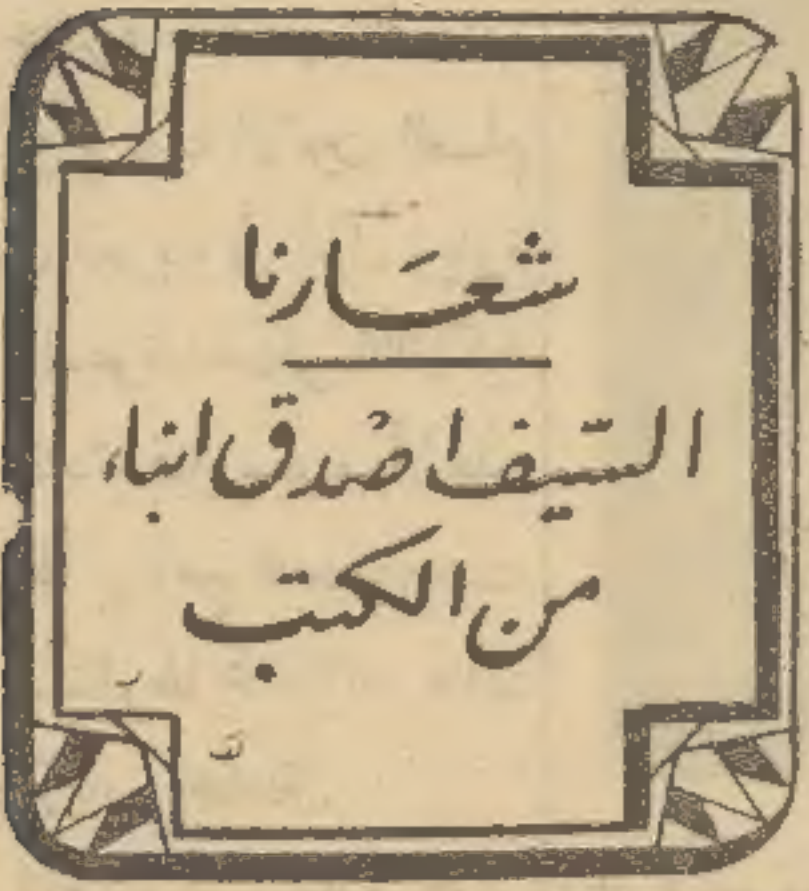 شعَارنا
السَّيف اصْدق انباء
من الكتب